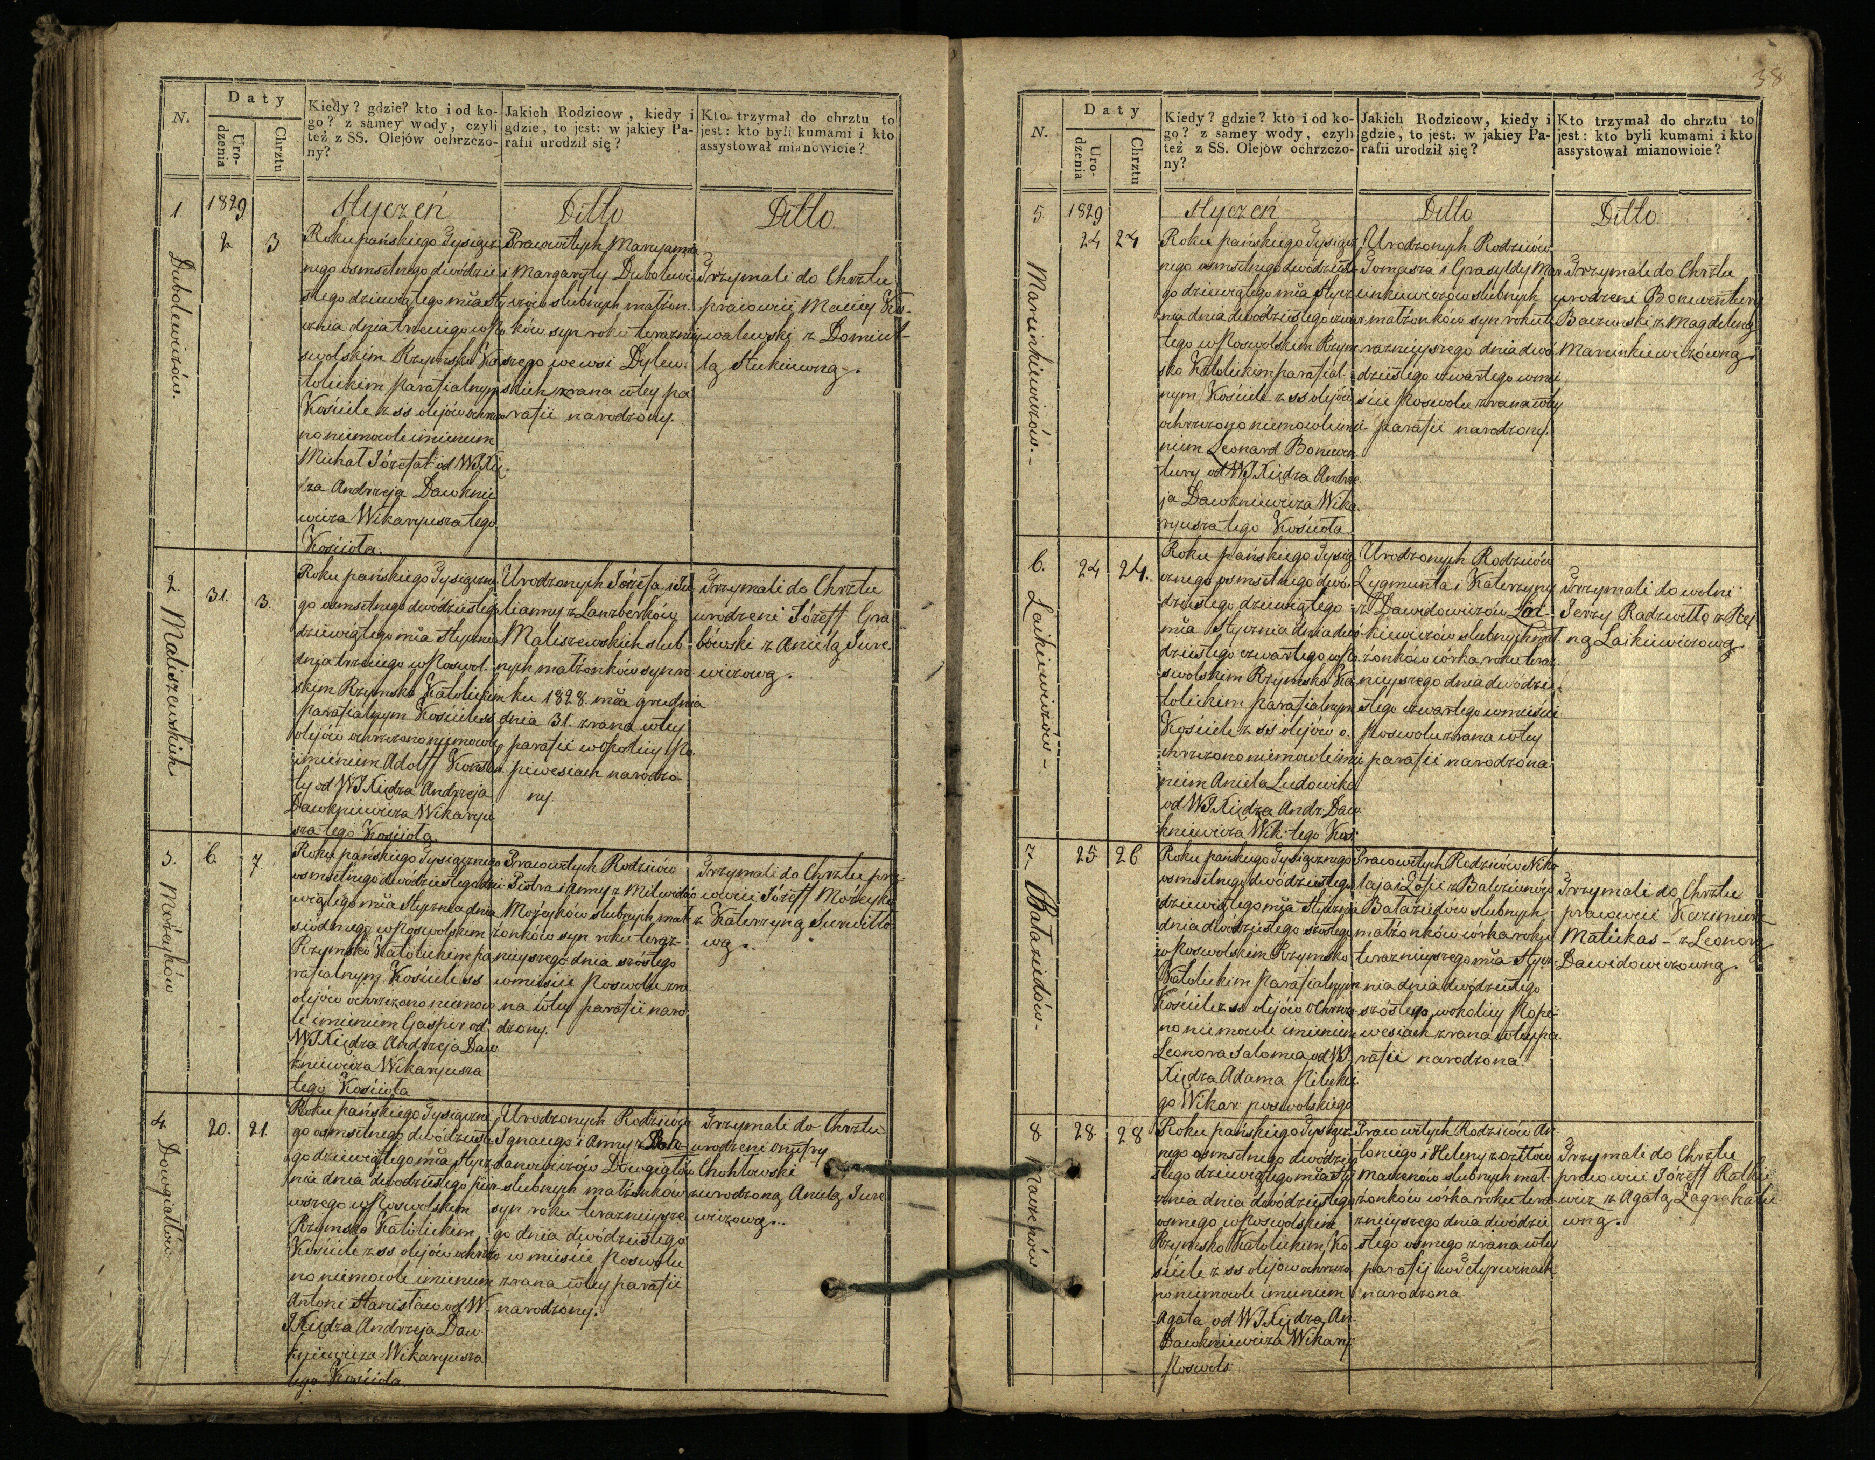 N.
Daty
Uro-
dzenia
Chrztu
Kiedy? gdzie? kto i od ko-
go? z samey wody, czyli
też z SS. Olejów ochrzczo-
ny?
Jakich Rodzicow, kiedy i
gdzie, to jest: w jakiey Pa-
rafii urodził się?
Kto trzymał do chrztu to
jest: kto byli kumami i kto
assystował mianowicie?
1.
1829
2
3
Dubolewiczów.
Styczeń
Roku pańskiego Tysiącz
nego osmsetnego dwódzie
stego dziewiątego mca sty
cznia dnia trzeciego w Po
swolskim Rzymsko Ka
tolickim Parafialnym
Kościele z ss olejów ochrzczo
no niemowle imieniem
Michał Józefat od WJXię
dza Andrzeja Dawknie
wicza Wikaryusza tego
Kościoła.
Ditto
Pracowitych Maryana
i Margaryty Dubolewi
czów slubnych małżon
ków syn roku teraźniey
szego we wsi Dylew
skich zrana w tey pa
rafii narodzony.
Ditto
Trzymali do Chrztu
pracowici Maciey Ko
walewski z Domicel
lą Stukiewną.
2
31.
3.
Maliszewskich
Roku pańskiego Tysiączne
go osmsetnego dwódziestego
dziewiątego mca Stycznia
dnia trzeciego w Poswol
skim Rzymsko Katolickim
parafialnym Kościele ss
olejów ochrzczono niemowle
imieniem Adolff Konstan
ty od WJXiędza Andrzeja
Dawkniewicza Wikaryu
sza tego Kościoła
Urodzonych Józefa i Ju
lianny z Lanzberków
Maliszewskich slub-
nych małżonków syn ro
ku 1828 mca grudnia
dnia 31. zrana w tey
parafii w okolicy Po
piwesiach narodzo
ny.
Trzymali do Chrztu
urodzeni Józeff Gra
bowski z Anielą Jure
wiczową.
3.
6
7
Możeyków
Roku pańskiego Tysiącznego
osmsetnego dwódziestego dzie
wiątego mca Stycznia dnia
siódmego w Poswolskim
Rzymsko Katolickim pa
rafialnym Kościele ss
olejów ochrzczono niemow
le imieniem Gasper od
WJXiędza Andrzeja Daw
kniewicza Wikaryusza
tego Kościoła
Pracowitych Rodziców
Piotra i Anny z Milwidów
Możeyków slubnych mał
żonków syn roku teraz-
nieyszego dnia szóstego
w mieście Poswolu zra
na w tey parafii naro
dzony.
Trzymali do Chrztu pra
cowici Józeff Możeyko
z Katarzyną Surwiłło
wą.
4
20.
21
Dowgiałłów
Roku pańskiego Tysiączne
go osmsetnego dwódzieste
go dziewiątego mca stycz
nia dnia dwódziestego pier
wszego w Poswolskim
Rzymsko Katolickim
Kościele z ss olejów ochrzczo
no niemowle imieniem
Antoni Stanisław od W.
JXiędza Andrzeja Daw
kniewicza Wikaryusza
tego Kościoła
Urodzonych Rodziców
Ignacego i Anny z
Dowgiałłów
slubnych małżonków
syn roku teraznieysze
go dnia dwódziestego
w mieście Poswolu
zrana w tey parafii
narodzony.
Trzymali do Chrztu
urodzeni Onufry
Chodkowski
z urodzoną Anielą Jure
wiczową.
38
N.
Daty
Uro-
dzenia
Chrztu
Kiedy? gdzie? kto i od ko-
go? z samey wody, czyli
też z SS. Olejów ochrzczo-
ny?
Jakich Rodziców, kiedy i
gdzie, to jest: w jakiey Pa-
rafii urodził się?
Kto trzymał do chrztu to
jest: kto byli kumami i kto
assystował mianowicie?
5.
1829
24
24
Marcinkiewiczów.
Styczeń
Roku pańskiego Tysiącz
nego osmsetnego dwódzieste
go dziewiątego mca stycz
nia dnia dwódziestego czwar
tego w Poswolskim Rzym
sko Katolickim parafial-
nym Kościele z ss olejów
ochrzczono niemowle imie
niem Leonard Bonawen
tury od WJXiędza Andrze
ja Dawkniewicza Wika
ryusza tego Kościoła
Ditto
Urodzonych Rodziców
Tomasza i Grasyldy Mar
cinkiewiczów slubnych
małżonków syn roku te
raznieyszego dnia dwó
dziestego czwartego w mie
ście Poswolu zrana w tey
parafii narodzony.
Ditto
Trzymali do Chrztu
urodzeni Bonawentury
Baczunski z Magdaleną
Marcinkiewiczówną.
6
24
24.
Laikiewiczów
Roku pańskiego Tysią
cznego osmsetnego dwó
dziestego dziewiątego
mca Stycznia dnia dwó
dziestego czwartego w Po
swolskim Rzymsko Ka
tolickim parafialnym
Kościele z ss olejów o
chrzczono niemowle imie
niem Aniela Ludowika
od WJXiędza Andr: Daw
kniewicza Wik: tego Koś:
Urodzonych Rodziców
Zygmunta i Katarzyny
z Dawidowiczów Lai-
kiewiczów slubnych mał
żonków córka roku teraz
nieyszego dnia dwódzie
stego czwartego w mieście
Poswolu zrana w tey
parafii narodzona
Trzymali do wolni
Jerzy Radziwiłło z Rej
ną Laikiewiczową
7
25
26
Bałaziudów
Roku pańskiego Tysiącznego
osmsetnego dwódziestego
dziewiątego mca Stycznia
dnia dwódziestego szóstego
w Poswolskim Rzymsko
Katolickim Parafialnym
Kościele z ss olejów ochrzczo
no niemowle imieniem
Leonora Salomea od WJ
Xiędza Adama
go Wikar poswolskiego
Pracowitych Rodziców Niko
łaja i Zofii z
Bałaziudów slubnych
małżonków córka roku
teraznieyszego mca Stycz
nia dnia dwódziestego
szóstego, w okolicy Popi
wesiach zrana w tey pa
rafii narodzona
Trzymali do Chrztu
pracowici Kazimierz
Matukas z Leonorą
Dawidowiczówną.
8
28
28
Roku pańskiego Tysiącz
nego osmsetnego dwódzie
stego dziewiątego mca Sty
cznia dnia dwódziestego
osmego w Poswolskim
Rzymsko Katolickim Ko
ściele z ss olejów ochrzczo
no niemowle imieniem
Agata od WJXiędza An
Dawkniewicza Wikary
Poswols
Pracowitych Rodziców An
toniego i Heleny
slubnych mał
żonków córka roku tera
znieyszego dnia dwódzie
stego osmego zrana w tey
parafij
narodzona
Trzymali do Chrztu
pracowici Józeff
z Agatą
wną.